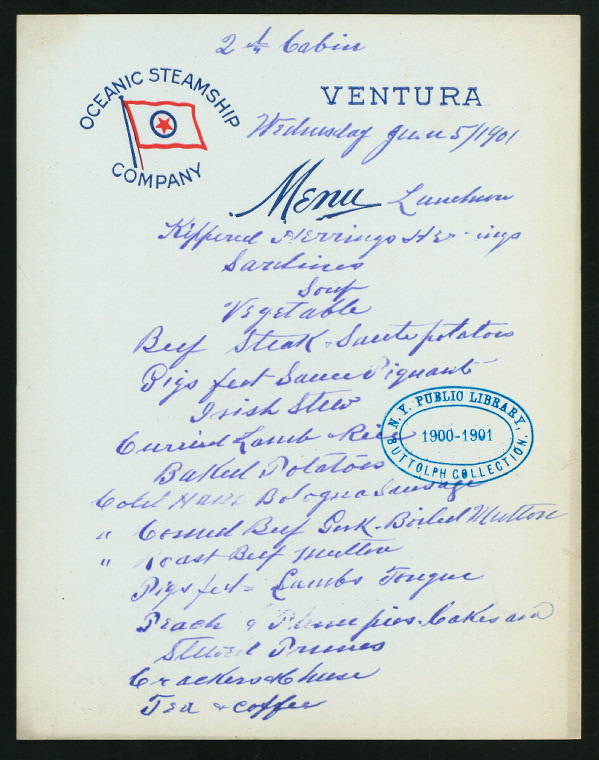 2nd Cabin
OCEANIC STEAMSHIP
COMPANY
VENTURA
Wednesday June 5/1901
Menu Luncheon
Kippered Herrings
Sardines
Soup
Vegetable
Beef Steak Saute potatoes
Pigs feet Sauce Piquant
Irish Stew
Curried Lamb Rice
Baked Potatoes
Cold Ham Bologna Sausage
" Corned Beef Pork Boiled Mutton
" Roast Beef Mutton
Pigs feet Lambs Tongue
Peach & Plum pies Cakes
Stewed Prunes
Crackers & Cheese
Tea & coffee
N.Y. PUBLIC LIBRARY,
1900-1901
BUTTOLPH COLLECTION.